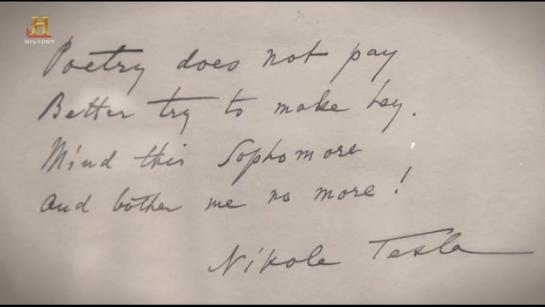 H
HISTORY
Poetry does not pay
Better try to make hay.
Mind this Sophomore
and bother me no more!
Nikola Tesla